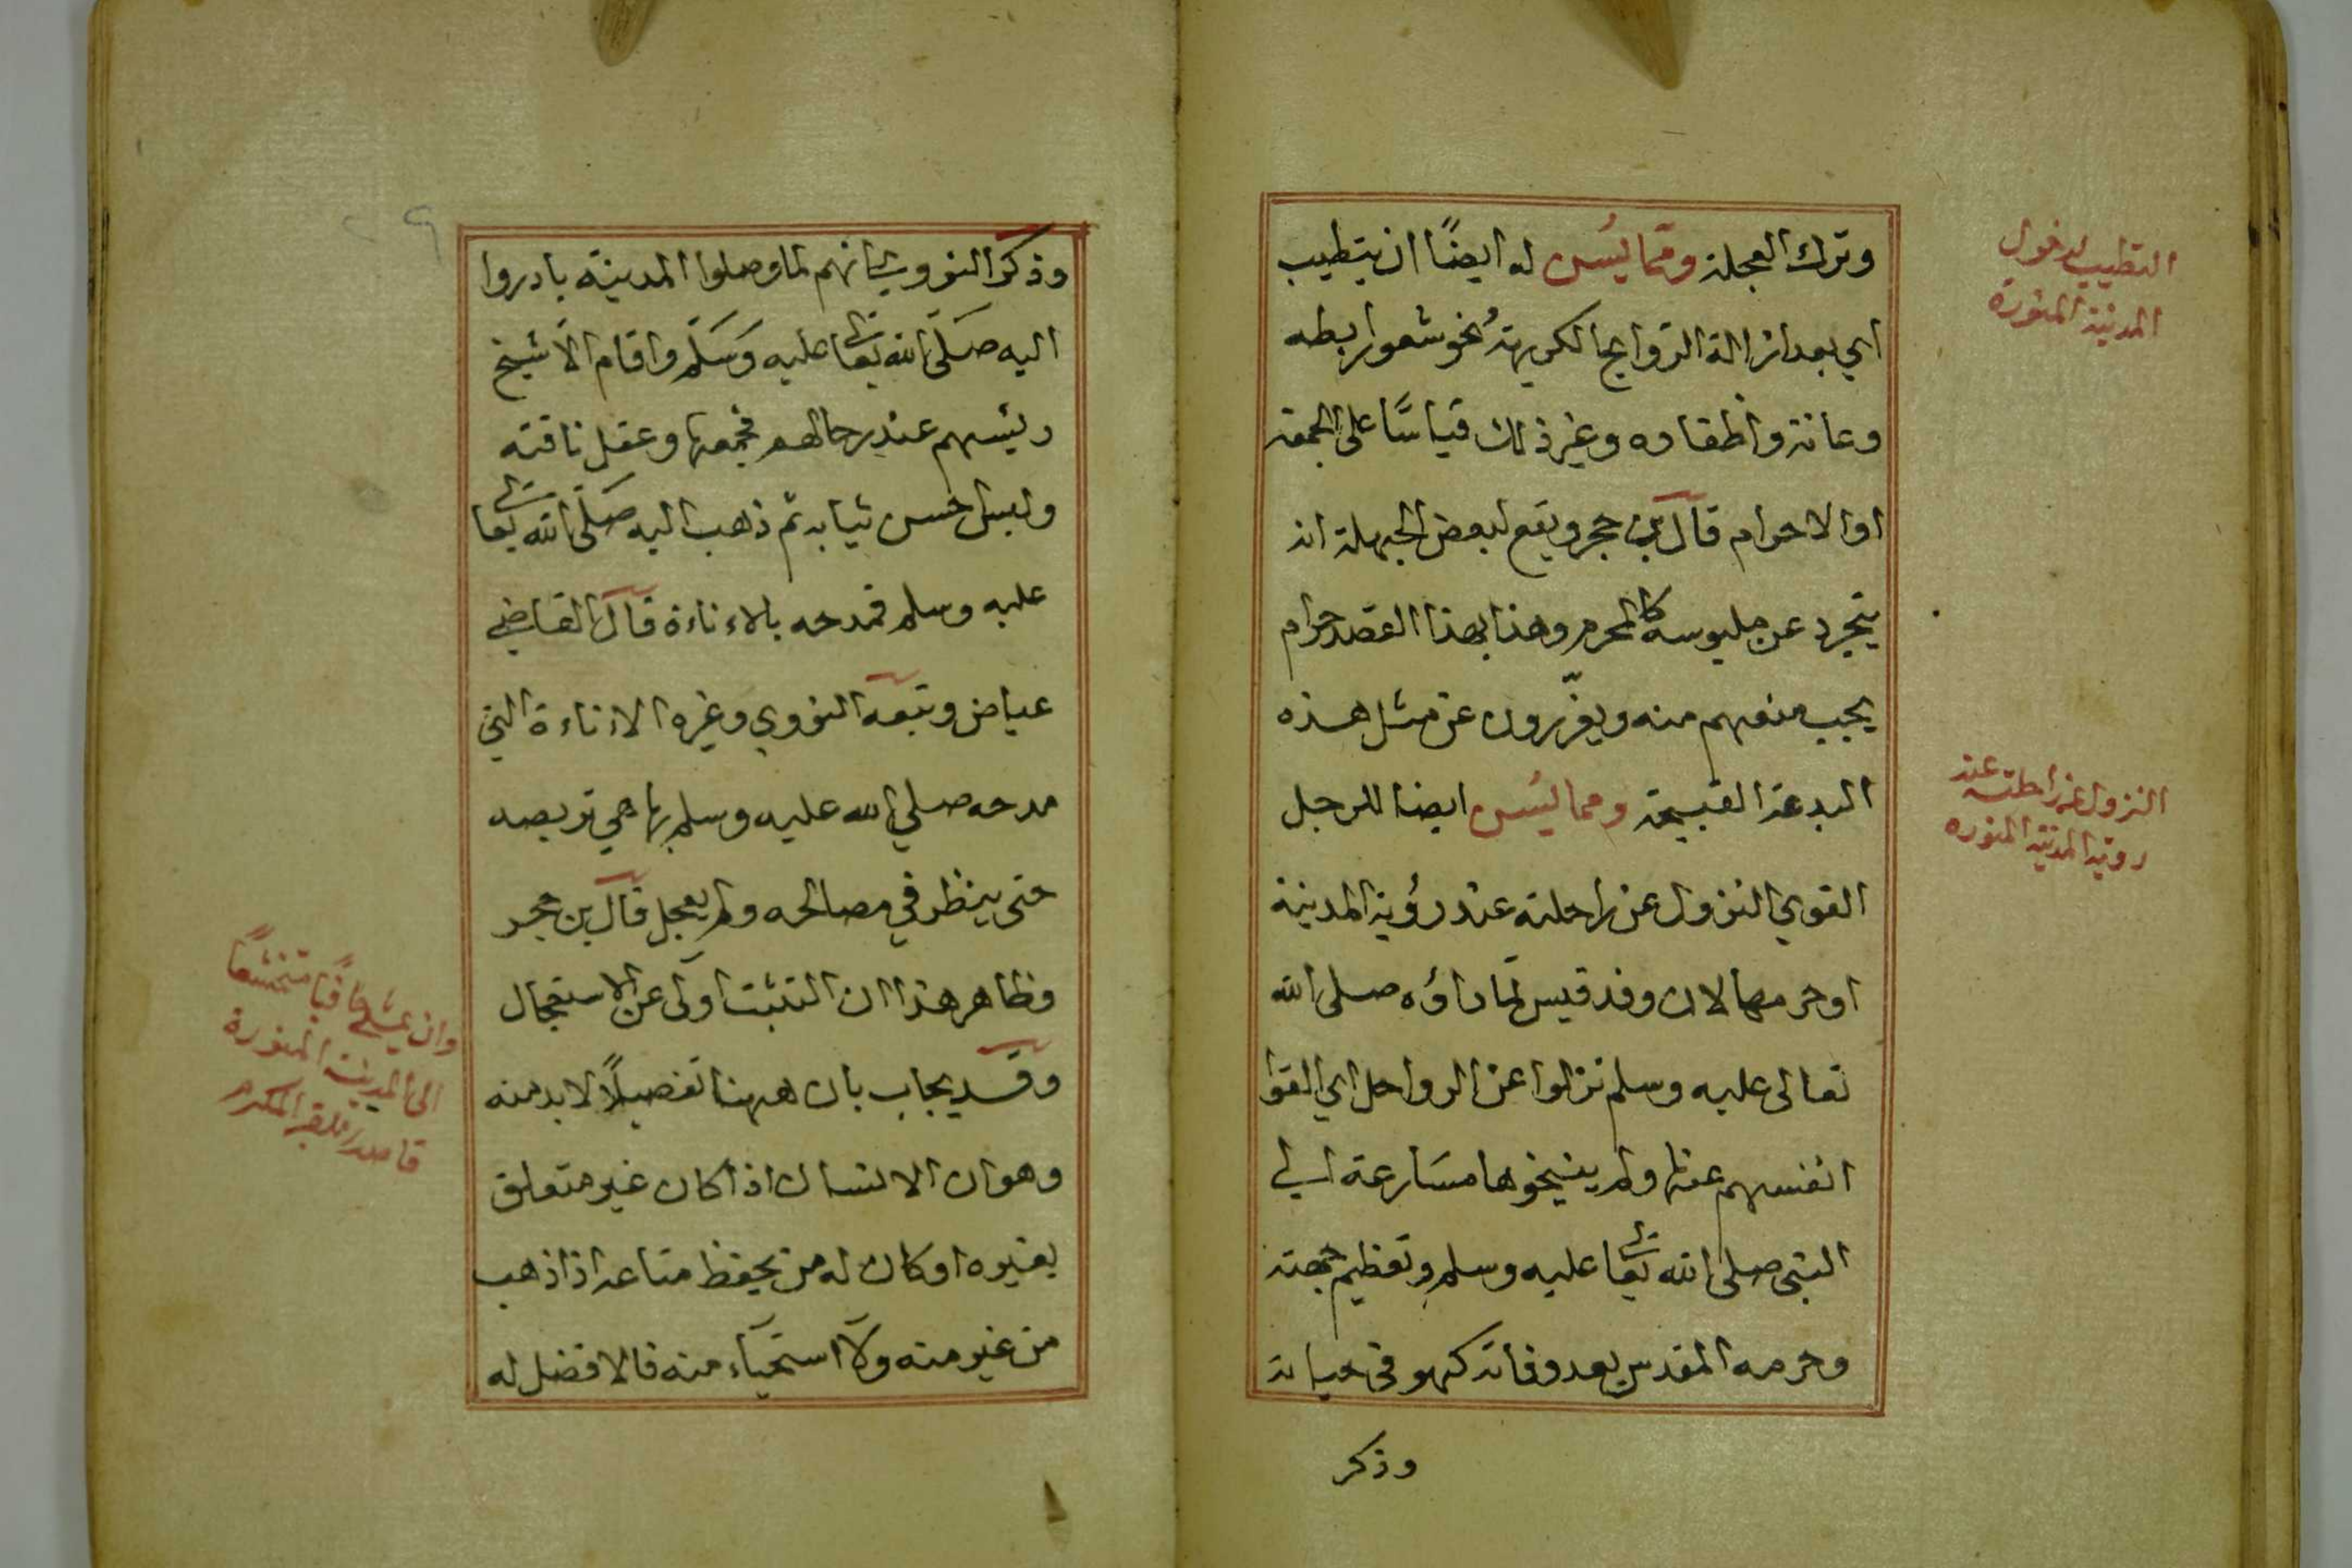 وترك العجلة ومما يسن له ايضًا ان يتطيب
اي بعد ازالة الروايح الكريهة نحو شعور ابطه
وعانة واظفاره وغير ذلك قياسًا على الجمعة
او الاحرام قال بن حجر ويقع لبعض الجهلة انه
يتجرد عن ملبوسه كالمحرم وهذا بهذا القصد حرام
يجب منعهم منه ويعزّرون عن مثل هذه
البدعة القبيحة ومما يسن ايضا للرجل
القوي النزول عن راحلته عند رؤية المدينة
او حرمها لان وفد قيس لمّا راؤه صلى الله
تعالى عليه وسلم نزلوا عن الرواحل اي القوا
انفسهم عنها ولم ينيخوها مسارعة الي
النبي صلى الله تعالى عليه وسلم وتعظيم جهته
وحرمه المقدس بعد وفاته كهو في حياته
وذكر
التطييب لدخول
المدينة المنورة
النزول عن راحلته عند
روية المدينة المنوره
وذكر النووي انهم لما وصلوا المدينة بادروا
اليه صلّى الله تعالى عليه وسلّم واقام الاشيخ
رئيسهم عند رحالهم فجمعها وعقل ناقته
ولبس احسن ثيابه ثم ذهب اليه صلّى الله تعالى
عليه وسلم فمدحه بالاءناءة قال القاضي
عياض وتبعه النووي وغيره الاءناءة التي
مدحه صلي الله عليه وسلم بها هي تربصه
حتى ينظر في مصالحه ولم يعجل قال بن حجر
وظاهر هذا ان التثبت اولى عن الاستعجال
وقد يجاب بان ههنا تفصيلاً لابد منه
وهو ان الانسان اذا كان غير متعلق
بغيره او كان له من يحفظ متاعه اذا ذهب
من غير منه ولا استحياء منه فالافضل له
وان يمشي حافيًا متخشعًا
الى المدينة المنورة
قاصدا للقبر المكرم